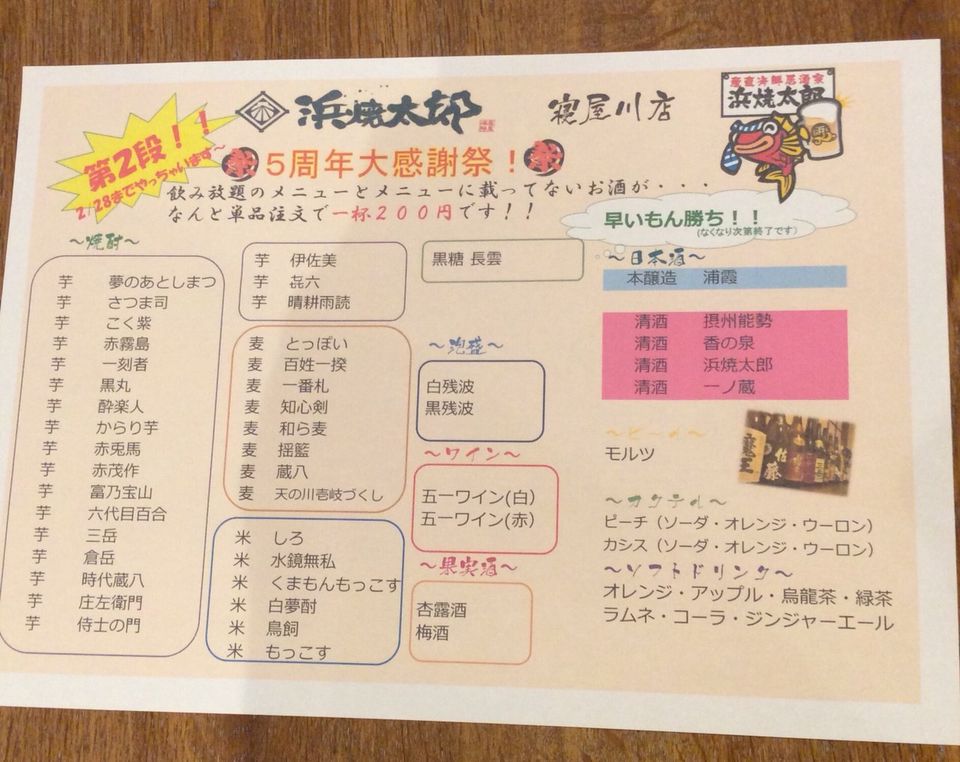 第2段！！
2/28までやっちゃいます～
浜焼太郎 寝屋川店
産直海鮮居酒家
浜焼太郎
5周年大感謝祭！
飲み放題のメニューとメニューに載ってないお酒が・・・
なんと単品注文で一杯２００円です！！
早いもん勝ち！！
(なくなり次第終了です)
～焼酎～
芋 夢のあとしまつ
芋 さつま司
芋 こく紫
芋 赤霧島
芋 一刻者
芋 黒丸
芋 酔楽人
芋 からり芋
芋 赤兎馬
芋 赤茂作
芋 富乃宝山
芋 六代目百合
芋 三岳
芋 倉岳
芋 時代蔵八
芋 庄左衛門
芋 侍士の門
芋 伊佐美
芋 㐂六
芋 晴耕雨読
麦 とっぽい
麦 百姓一揆
麦 一番札
麦 知心剣
麦 和ら麦
麦 揺籃
麦 蔵八
麦 天の川壱岐づくし
米 しろ
米 水鏡無私
米 くまもんもっこす
米 白夢酎
米 鳥飼
米 もっこす
黒糖 長雲
～泡盛～
白残波
黒残波
～ワイン～
五一ワイン(白)
五一ワイン(赤)
～果実酒～
杏露酒
梅酒
～日本酒～
本醸造 浦霞
清酒 摂州能勢
清酒 香の泉
清酒 浜焼太郎
清酒 一ノ蔵
～ビール～
モルツ
魔王
佐藤
～カクテル～
ピーチ（ソーダ・オレンジ・ウーロン）
カシス（ソーダ・オレンジ・ウーロン）
～ソフトドリンク～
オレンジ・アップル・烏龍茶・緑茶
ラムネ・コーラ・ジンジャーエール